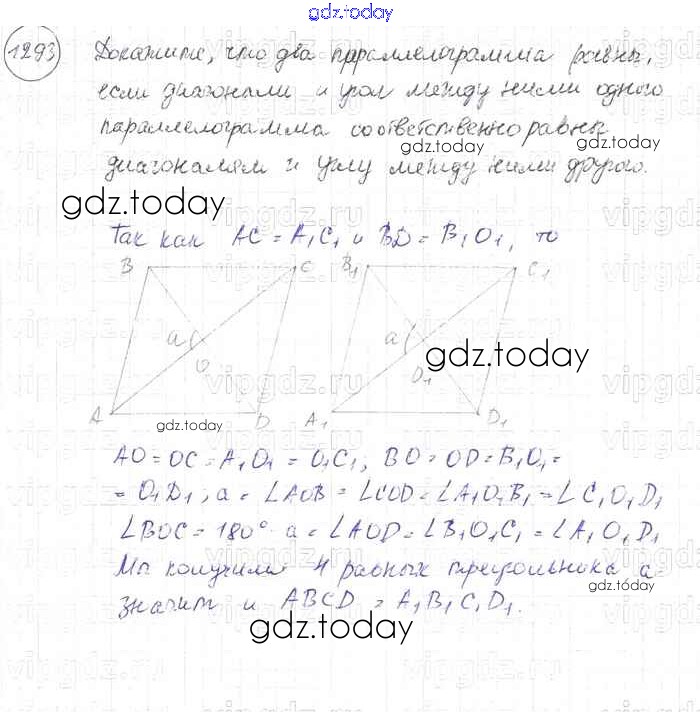 gdz.today
1293 Докажите, что два параллелограмма равны,
если диагонали и угол между ними одного
параллелограмма соответственно равны
диагоналям и углу между ними другого.
gdz.today
Так как AC = A₁C₁ и BD = B₁D₁, то
B C B₁ C₁
a a
gdz.today
O O₁
A D A₁ D₁
gdz.today
AO = OC = A₁O₁ = O₁C₁, BO = OD = B₁O₁ =
= O₁D₁, a = ∠AOB = ∠COD = ∠A₁O₁B₁ = ∠C₁O₁D₁
∠BOC = 180° - a = ∠AOD = ∠B₁O₁C₁ = ∠A₁O₁D₁
Мы получили 4 равных треугольника а
gdz.today
значит и ABCD = A₁B₁C₁D₁.
gdz.today
vipgdz.ru